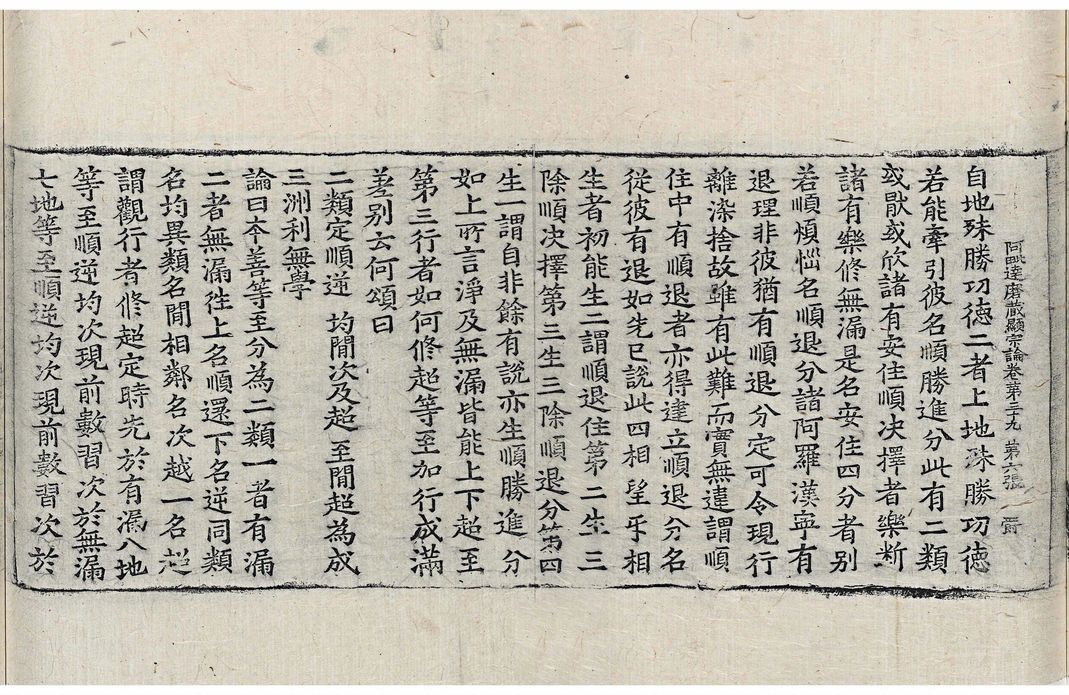 阿毗達磨藏顯宗論卷第三十九 第六張 爵
自地殊勝功德二者上地殊勝功德
若能牽引彼名順勝進分此有二類
或猒或欣諸有安住順决擇者樂斷
諸有樂修無漏是名安住四分者别
若順煩惱名順退分諸阿羅漢寧有
退理非彼猶有順退分定可令現行
離染捨故雖有此難而實無違謂順
住中有順退者亦得建立順退分名
從彼有退如先已說此四相望乎相
生者初能生二謂順退住第二生三
除順决擇第三生三除順退分第四
生一謂自非餘有說亦生順勝進分
如上所言淨及無漏皆能上下超至
第三行者如何修超等至加行成滿
差别云何頌曰
二類定順逆 均間次及超 至間超為成
三洲利無學
論曰本善等至分為二類一者有漏
二者無漏徃上名順還下名逆同類
名均異類名間相鄰名次越一名超
謂觀行者修超定時先於有漏八地
等至順逆均次現前數習次於無漏
七地等至順逆均次現前數習次於